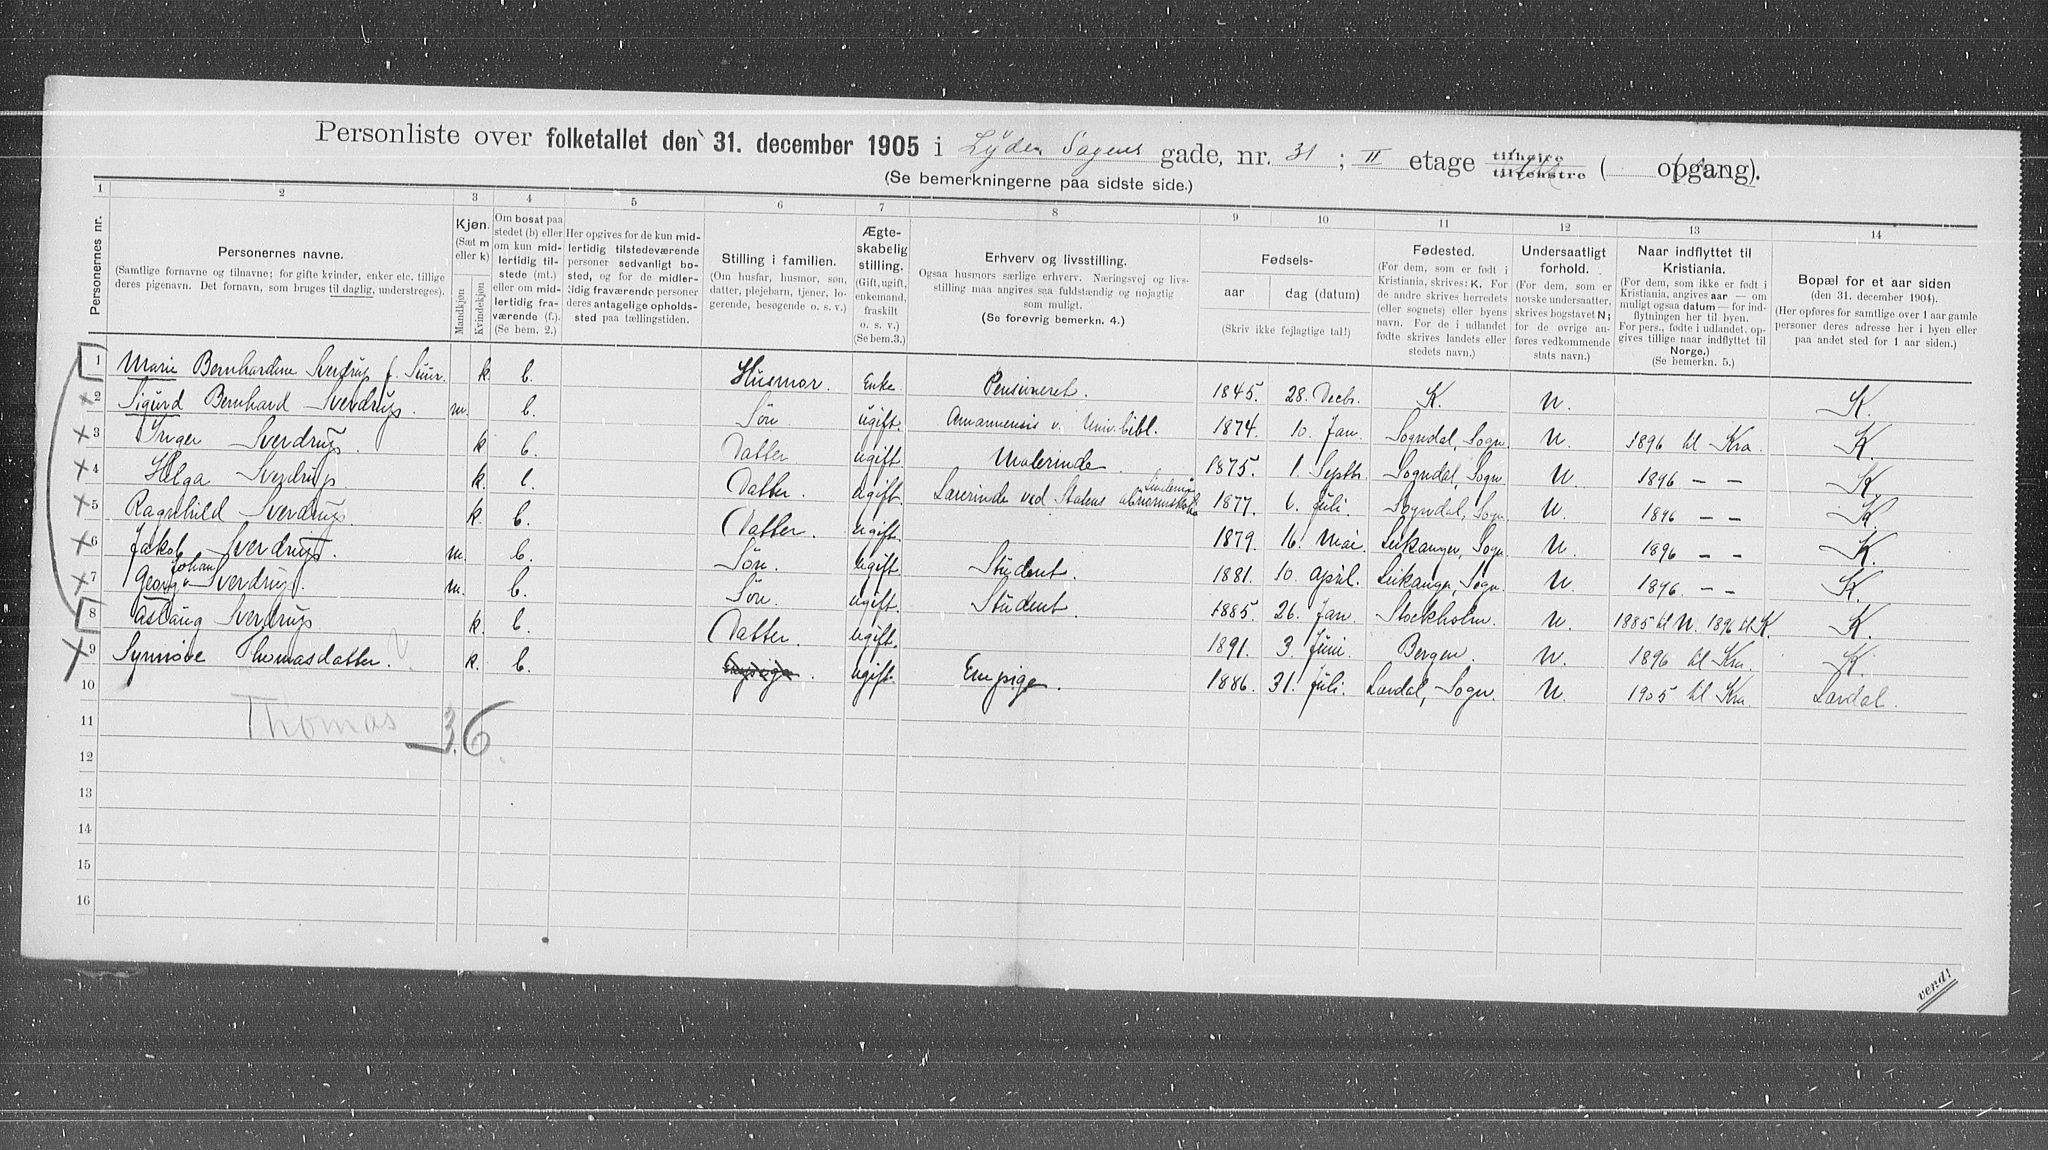 Personliste over folketallet den 31. december 1905 i Lyder Sagens gade, nr. 31 ; II etage tilhøire tilvenstre ( opgang).
(Se bemerkningerne paa sidste side.)
1 2 3 4 5 6 7 8 9 10 11 12 13 14
Personernes nr.
Personernes navne.
(Samtlige fornavne og tilnavne; for gifte kvinder, enker etc. tillige
deres pigenavn. Det fornavn, som bruges til daglig, understreges).
Kjøn.
(Sæt m
eller k)
Mandkjøn
Kvindekjøn
Om bosat paa
stedet (b) eller
om kun mid-
lertidig til-
stede (mt.)
eller om mid-
lertidig fra-
værende (f.).
(Se bem. 2.)
Her opgives for de kun mid-
lertidig tilstedeværende
personer sedvanligt bo-
sted, og for de midler-
tidig fraværende personer
deres antagelige opholds-
sted paa tællingstiden.
Stilling i familien.
(Om husfar, husmor, søn,
datter, plejebarn, tjener, lo-
gerende, besøgende o. s. v.)
Ægte-
skabelig
stilling.
(Gift, ugift,
enkemand,
fraskilt
o. s. v.)
(Se bem.3.)
Erhverv og livsstilling.
Ogsaa husmors særlige erhverv. Næringsvej og livs-
stilling maa angives saa fuldstændig og nøjagtig
som muligt.
(Se forøvrig bemerkn. 4.)
Fødsels-
aar dag (datum)
(Skriv ikke fejlagtige tal!)
Fødested.
(For dem, som er født i
Kristiania, skrives: K. For
de andre skrives herredets
(eller sognets) eller byens
navn. For de i udlandet
fødte skrives landets eller
stedets navn.)
Undersaatligt
forhold.
(For dem, som er
norske undersaatter,
skrives bogstavet N;
for de øvrige an-
føres vedkommende
stats navn.)
Naar indflyttet til
Kristiania.
(For dem, som ikke er født i
Kristiania, angives aar — om
muligt ogsaa datum — for ind-
flytningen her til byen.
For pers., fødte i udlandet, op-
gives tillige naar indflyttet til
Norge.)
(Se bemerkn. 5.)
Bopæl for et aar siden
(den 31. december 1904).
(Her opføres for samtlige over 1 aar gamle
personer deres adresse her i byen eller
paa andet sted for 1 aar siden.)
1 Marie Bernhardine Sverdrup f. k. b. Husmor. Enke Pensioneret. 1845. 28. Decbr. K. N. K.
2 Sigurd Bernhard Sverdrup. m. b. Søn ugift. Amanuensis v. Univ.bibl. 1874. 10. Jan. Sogndal, Sogn. N. 1896 til Kra K.
3 Inger Sverdrup. k b. Datter ugift Malerinde. 1875. 1. Septbr. Sogndal, Sogn N 1896 — — K.
4 Helga Sverdrup. k. b. Datter. ugift. Lærerinde ved Statens 1877. 6. Juli. Sogndal, Sogn N. 1896 — — K.
5 Ragnhild Sverdrup. k. b. Datter. ugift. 1879. 16. Mai. Leikanger, Sogn. N. 1896 — — K.
6 Jakob Sverdrup. m. b. Søn. ugift. Student. 1881. 10. April. Leikanger, Sogn. N. 1896. — — K.
7 Georg Johan Sverdrup. m. b. Søn. ugift. Student. 1885. 26. Jan. Stockholm. N. 1885 til N. 1896 til K. K.
8 Aslaug Sverdrup k. b. Datter. ugift. 1891. 3. Juni. Bergen. N. 1896 til Kra. K
9 Synnøve Thomasdatter. k. b. ugift. Enepige. 1886. 31. Juli. Lærdal, Sogn. N. 1905 til Kra. Lærdal.
10
11 Thomas 36
12
13
14
15
16
vend!